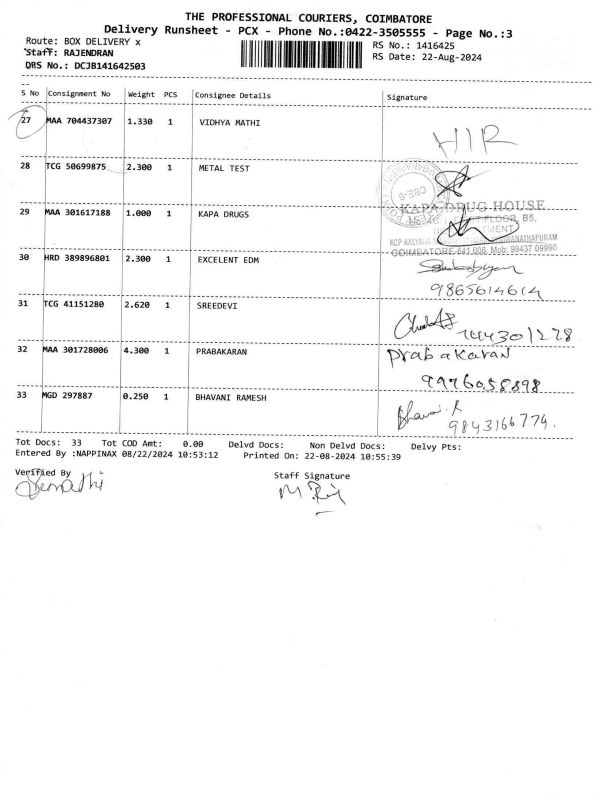 THE PROFESSIONAL COURIERS, COIMBATORE
Delivery Runsheet - PCX - Phone No.:0422-3505555 - Page No.:3
Route: BOX DELIVERY x RS No.: 1416425
Staff: RAJENDRAN RS Date: 22-Aug-2024
DRS No.: DCJB141642503
S No Consignment No Weight PCS Consignee Details Signature
27 MAA 704437307 1.330 1 VIDHYA MATHI
28 TCG 50699875 2.300 1 METAL TEST
KAPA DRUG HOUSE
FLOOR, B5,
29 MAA 301617188 1.000 1 KAPA DRUGS
COIMBATORE-641 009. Mob: 99437 09990
30 HRD 389896801 2.300 1 EXCELENT EDM
9865614614
31 TCG 41151280 2.620 1 SREEDEVI
32 MAA 301728006 4.300 1 PRABAKARAN Prabakaran
9976058898
33 MGD 297887 0.250 1 BHAVANI RAMESH
9843166774.
Tot Docs: 33 Tot COD Amt: 0.00 Delvd Docs: Non Delvd Docs: Delvy Pts:
Entered By :NAPPINAX 08/22/2024 10:53:12 Printed On: 22-08-2024 10:55:39
Verified By Staff Signature